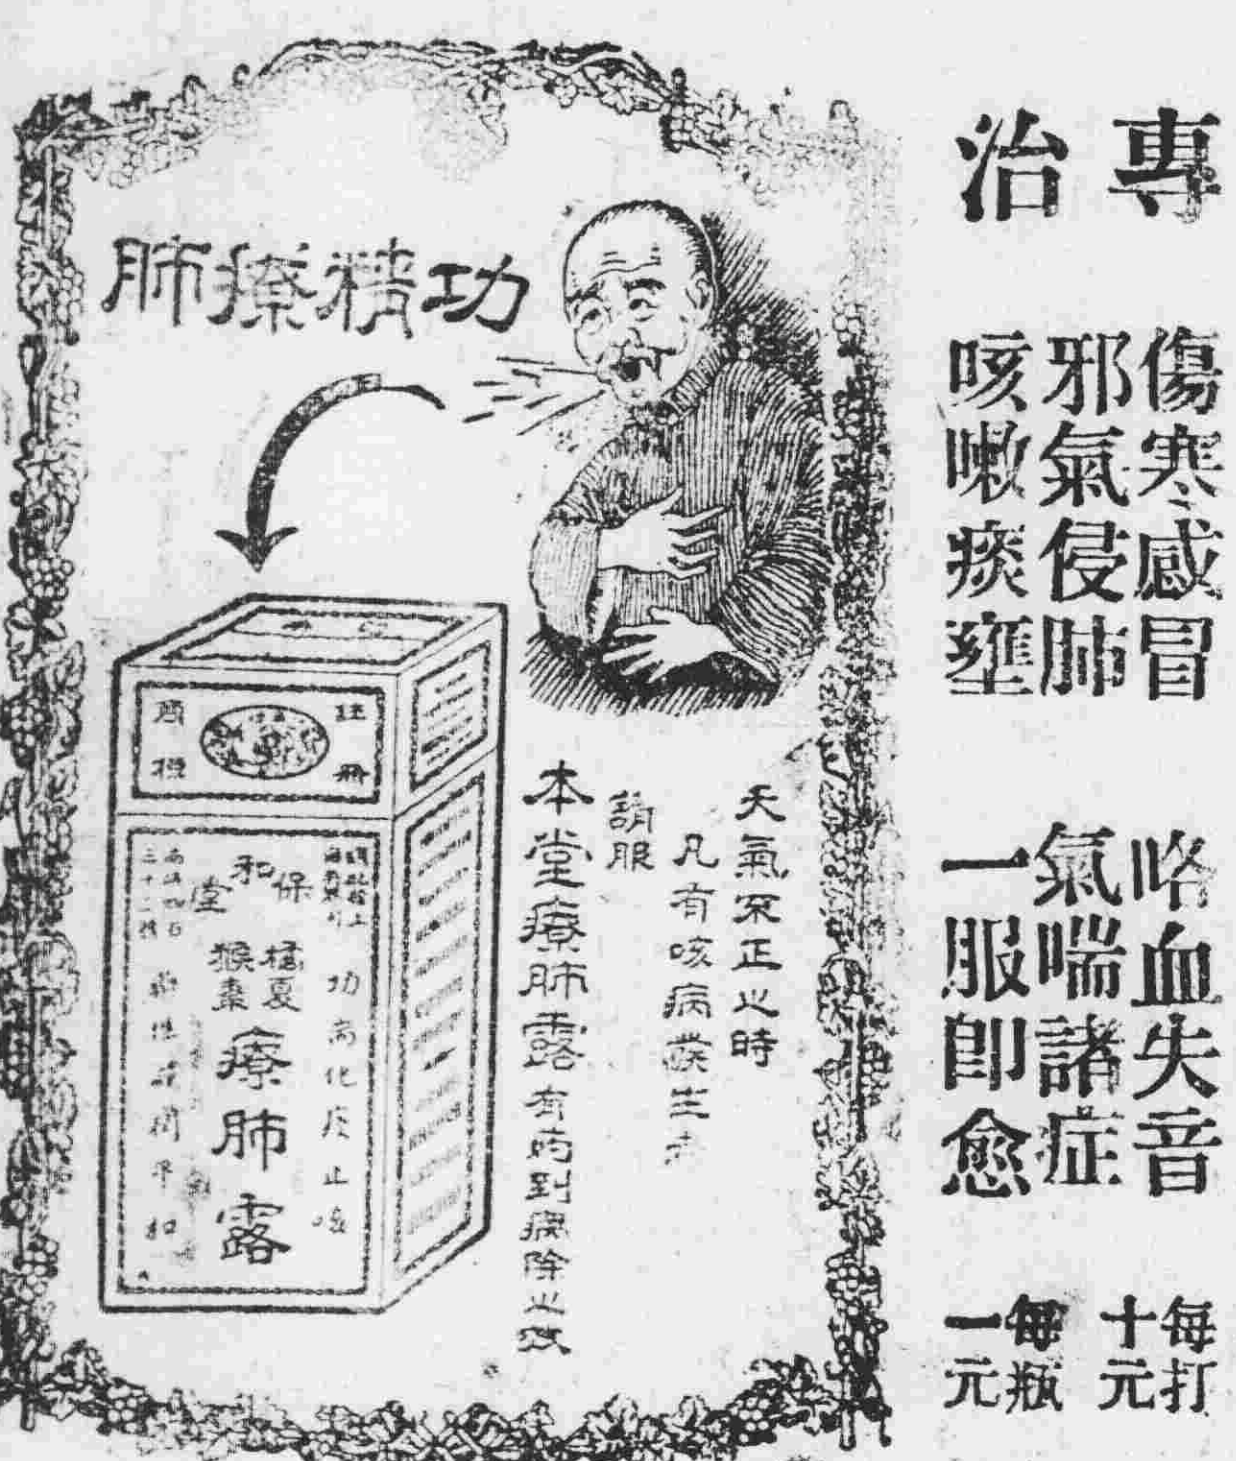 專治
傷寒感冒
邪氣侵肺
咳嗽痰壅
咯血失音
氣喘諸症
一服卽愈
每打十元
每瓶一元
功精療肺
天氣不正之時
凡有咳病發生者
請服
本堂療肺露有的到病除之效
註冊商標
保和堂
橘夏猴棗
療肺露
功崗化痰止咳